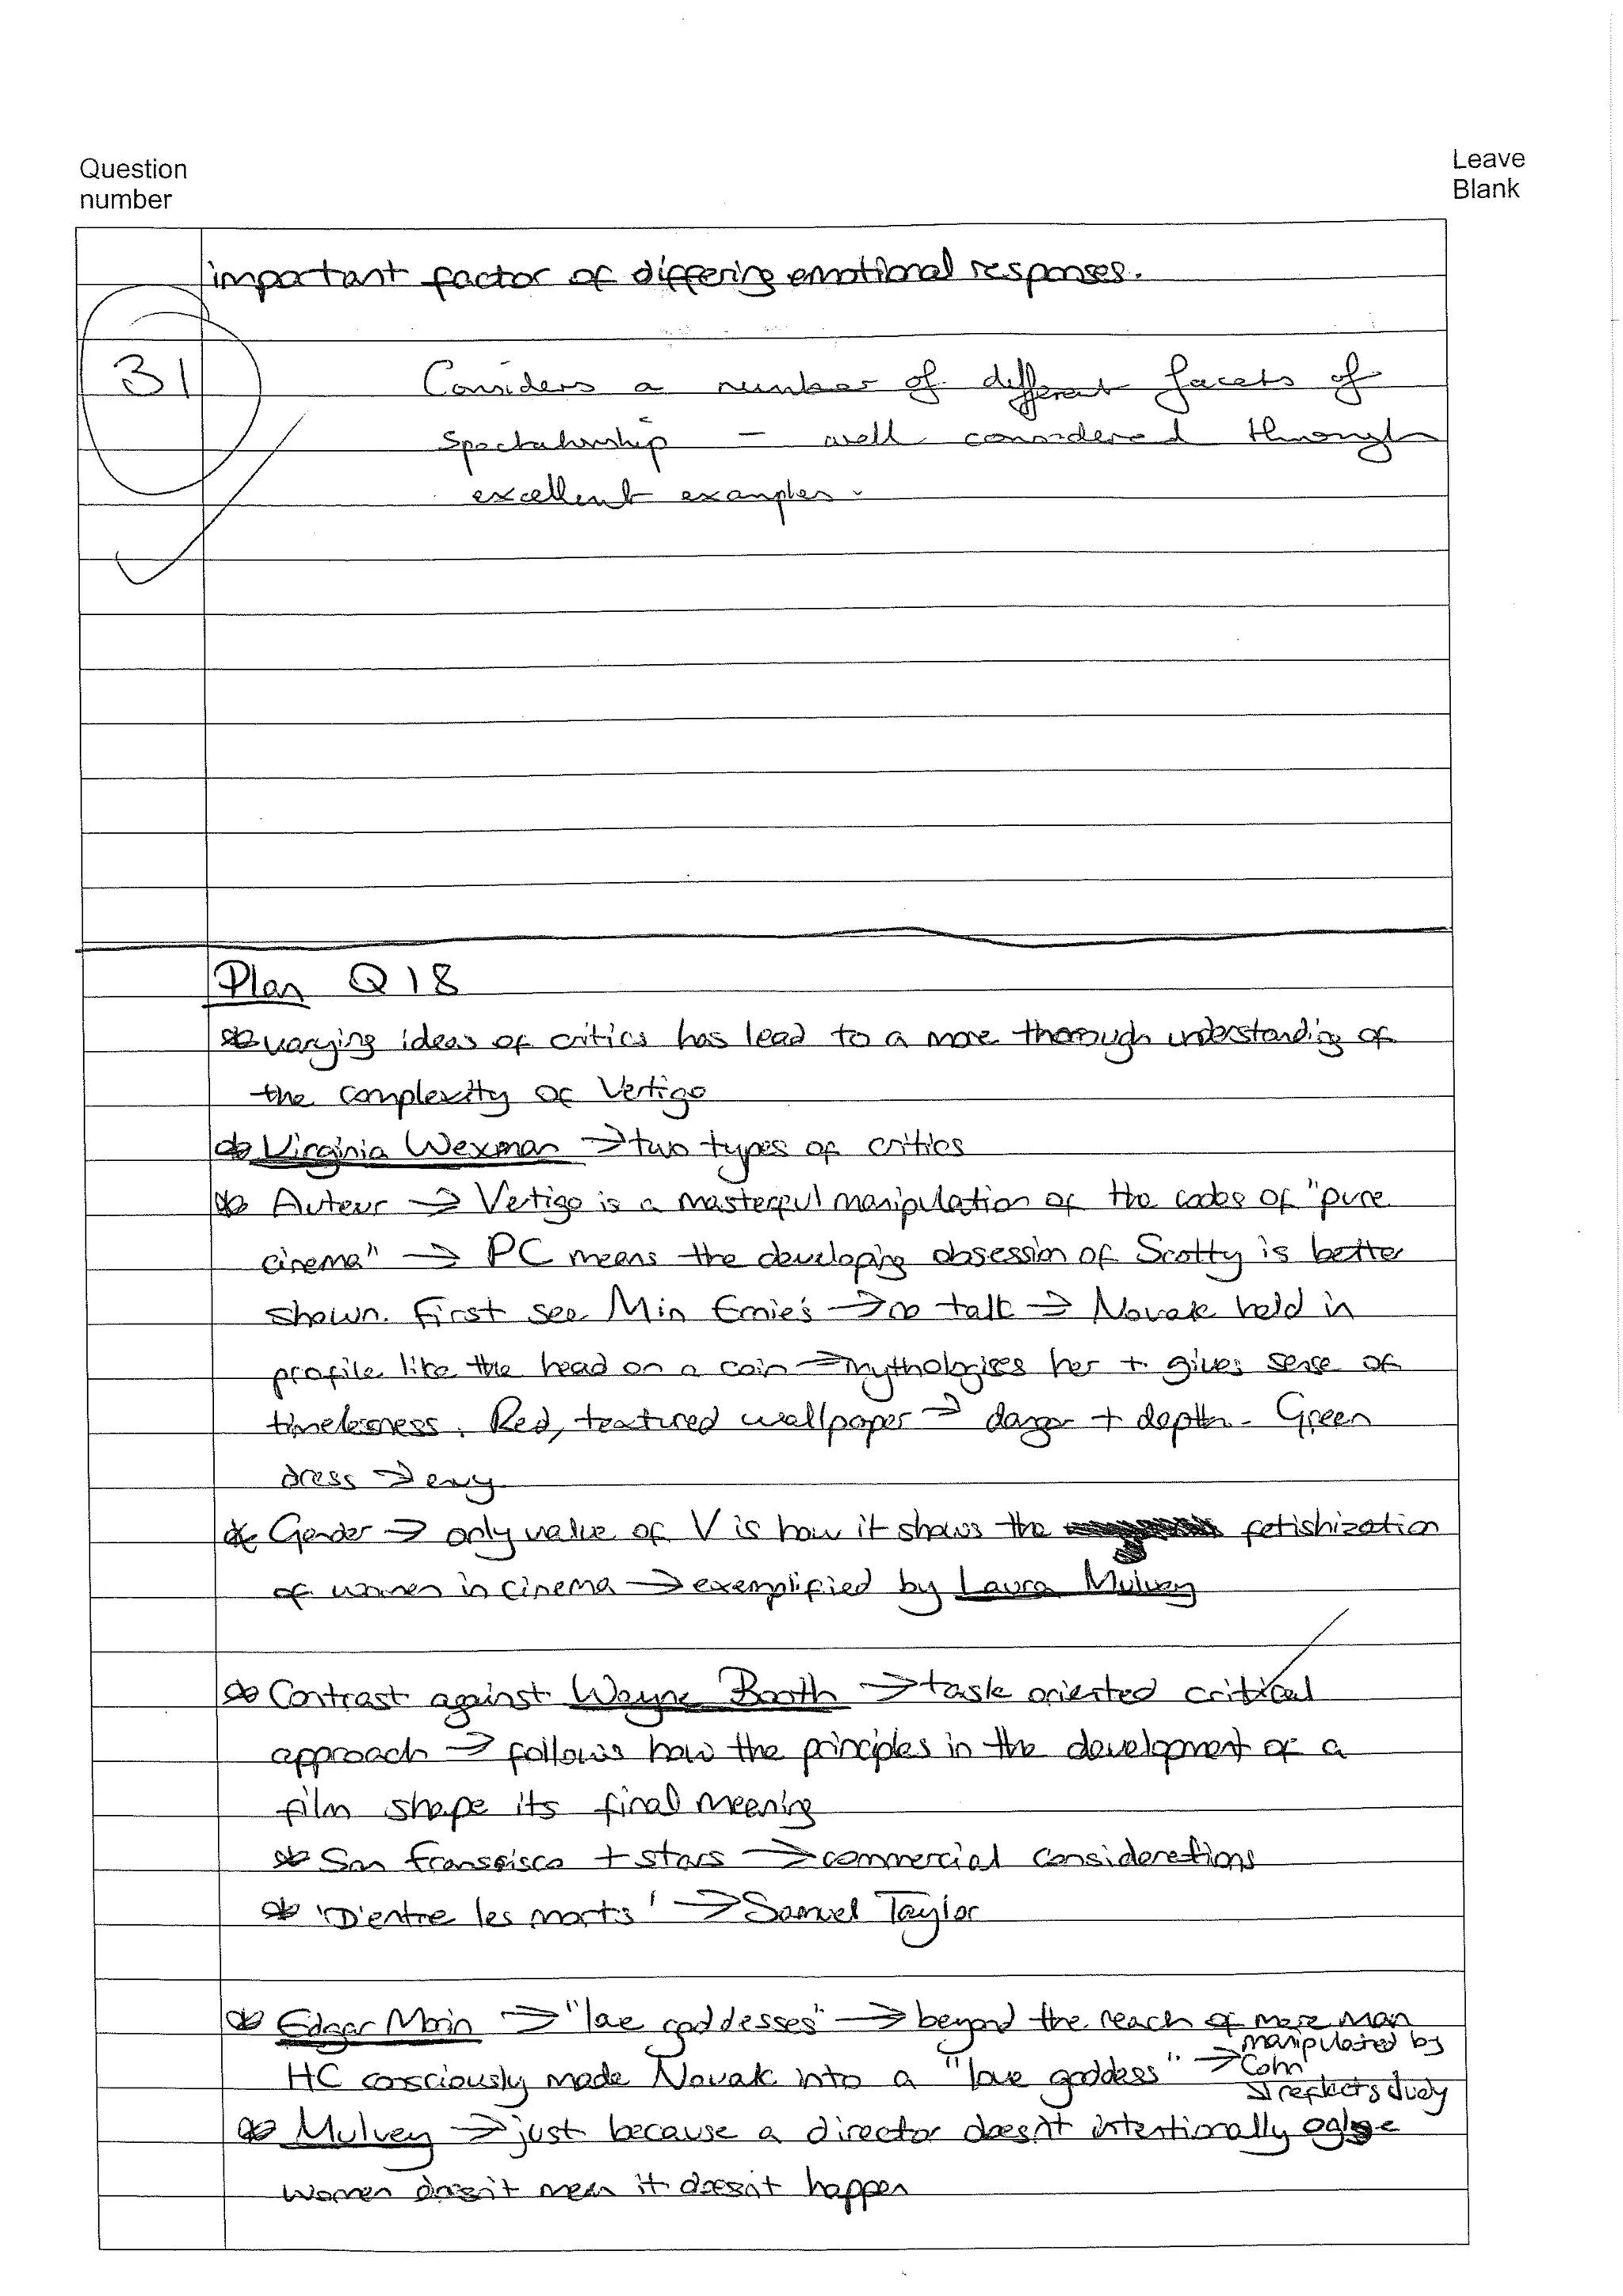 Question
number
Leave
Blank
important factor of differing emotional responses.
31
Considers a number of different facets of
Spectatorship – well considered through
excellent examples.
Plan Q18
* varying ideas of critics has lead to a more thorough understanding of
the complexity of Vertigo
* Virginia Wexman → two types of critics
* Auteur → Vertigo is a masterful manipulation of the codes of "pure
cinema" → PC means the developing obsession of Scotty is better
shown. First see Min Ernie's → no talk → Novak held in
profile like the head on a coin → mythologises her + gives sense of
timelessness. Red, textured wallpaper → danger + depth. Green
dress → envy
* Gender → only value of V is how it shows the fetishization
of women in cinema → exemplified by Laura Mulvey
* Contrast against Wayne Booth → task oriented critical
approach → follows how the principles in the development of a
film shape its final meaning
* San Fransisco + stars → commercial considerations
* 'D'entre les morts' → Samuel Taylor
* Edgar Morin → "love goddesses" → beyond the reach of mere man
HC consciously made Novak into a "love goddess" → manipulated by
Cohn
→ reflects Judy
* Mulvey → just because a director doesn't intentionally ogle
women doesn't mean it doesn't happen